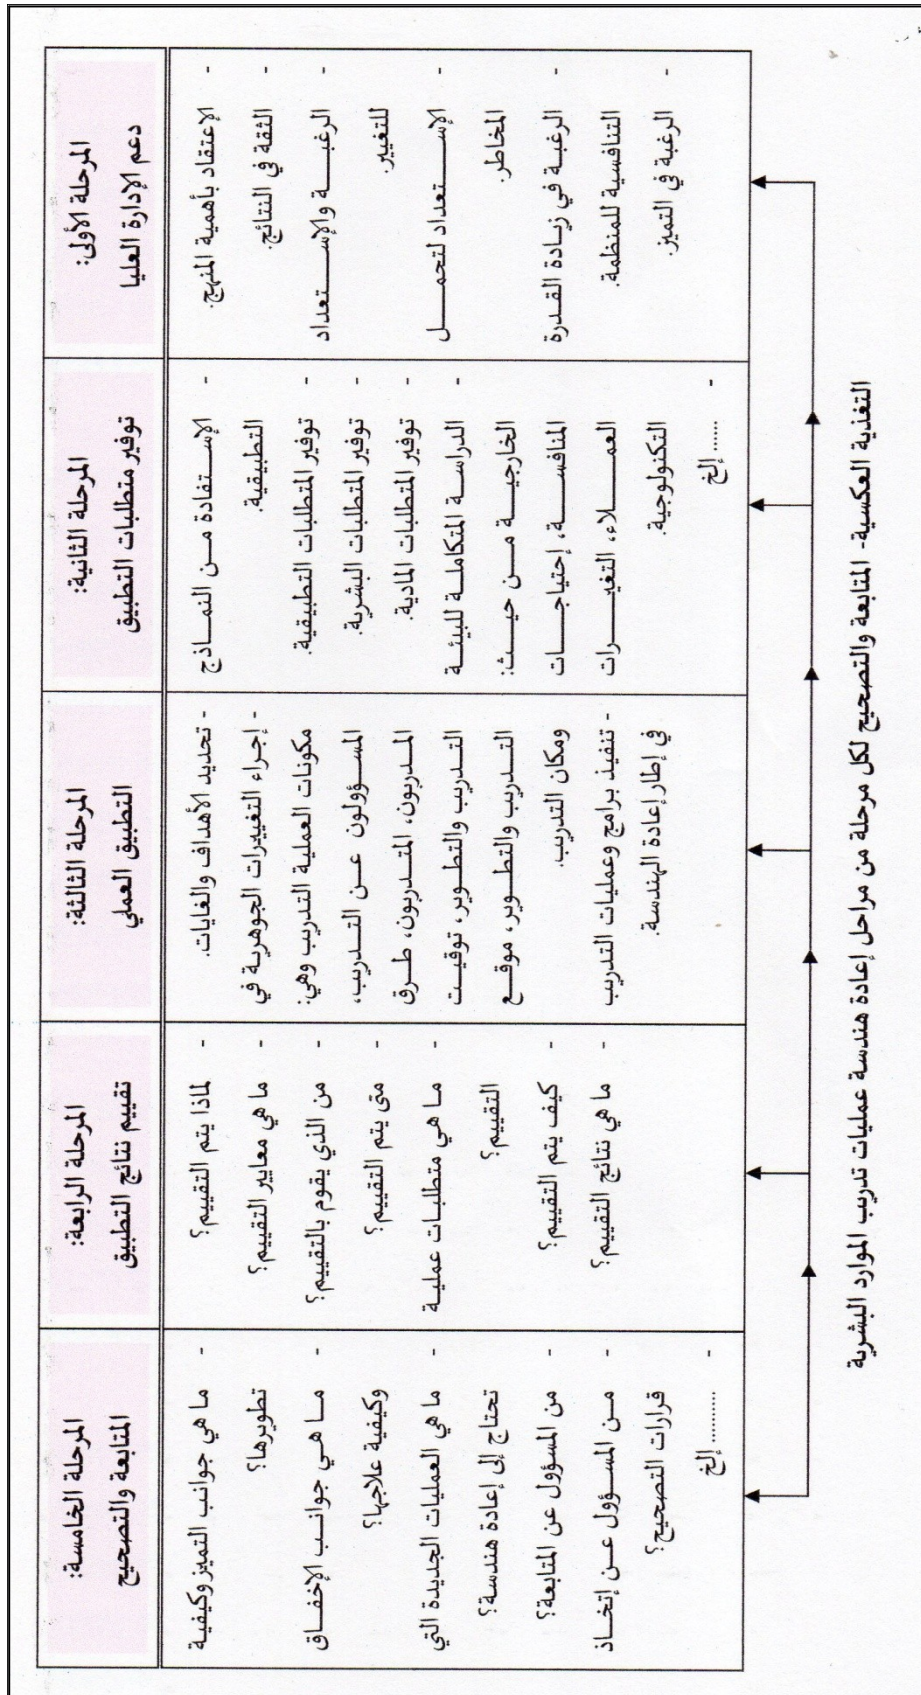 المرحلة الأولى:
دعم الإدارة العليا
- الإعتقاد بأهمية المنهج.
- الثقة في النتائج.
- الرغبة والإستعداد
للتغيير.
- الإستعداد لتحمل
المخاطر.
- الرغبة في زيادة القدرة
التنافسية للمنظمة.
- الرغبة في التميز.
المرحلة الثانية:
توفير متطلبات التطبيق
- الإستفادة من النماذج
التطبيقية.
- توفير المتطلبات التطبيقية.
- توفير المتطلبات البشرية.
- توفير المتطلبات المادية.
- الدراسة المتكاملة للبيئة
الخارجية من حيث:
المنافسة، إحتياجات
العملاء، التغيرات
التكنولوجية.
- ...... إلخ
المرحلة الثالثة:
التطبيق العملي
- تحديد الأهداف والغايات.
- إجراء التغييرات الجوهرية في
مكونات العملية التدريب وهي:
المسؤولون عن التدريب،
المدربون، المتدربون، طرق
التدريب والتطوير، توقيت
التدريب والتطوير، موقع
ومكان التدريب.
- تنفيذ برامج وعمليات التدريب
في إطار إعادة الهندسة.
المرحلة الرابعة:
تقييم نتائج التطبيق
- لماذا يتم التقييم؟
- ما هي معايير التقييم؟
- من الذي يقوم بالتقييم؟
- متى يتم التقييم؟
- ما هي متطلبات عملية
التقييم؟
- كيف يتم التقييم؟
- ما هي نتائج التقييم؟
المرحلة الخامسة:
المتابعة والتصحيح
- ما هي جوانب التميز وكيفية
تطويرها؟
- ما هي جوانب الإخفاق
وكيفية علاجها؟
- ما هي العمليات الجديدة التي
تحتاج إلى إعادة هندسة؟
- من المسؤول عن المتابعة؟
- من المسؤول عن إتخاذ
قرارات التصحيح؟
- .......... إلخ
التغذية العكسية- المتابعة والتصحيح لكل مرحلة من مراحل إعادة هندسة عمليات تدريب الموارد البشرية